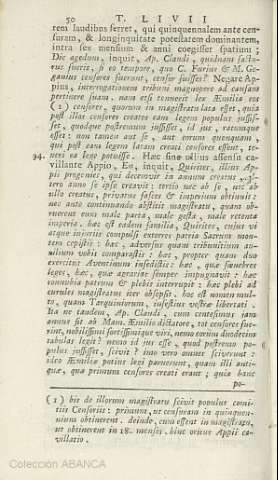 50 T. LIVII
rem laudibus ferret, qui quinquennalem ante cen-
suram, & longinquitate potestatem dominantem,
intra sex mensium & anni coegisset spatium;
Dic agedum, inquit, Ap. Claudi, quidnam factu-
rus fueris, si eo tempore, quo C. Furius & M. Ge-
ganius censores fuerunt, censor fuisses? Negare Ap-
pius, interrogationem tribuni magnopere ad causam
pertinere suam. nam etsi tenuerit lex Æmilia eos
(1) censores, quorum in magistratu lata esset, quia
post illos censores creatos eam legem populus jussis-
set, quodque postremum jussisset, id jus, ratumque
esset: non tamen aut se, aut eorum quemquam,
qui post eam legem latam creati censores essent, te-
neri ea lege potuisse. Hæc sine ullius assensu ca-
34. villante Appio, En, inquit, Quirites, illius Ap-
pii progenies, qui decemvir in annum creatus al-
tero anno se ipse creavit: tertio nec ab se, nec ab
ullo creatus, privatus fasces & imperium obtinuit:
nec ante continuando abstitit magistratu, quam ob-
ruerent eum male parta, male gesta, male retenta
imperia. hæc est eadem familia, Quirites, cujus vi
atque injuriis compulsi extorres patria Sacrum mon-
tem cepistis: hæc, adversus quam tribunitium au-
xilium vobis comparastis: hæc, propter quam duo
exercitus Aventinum insedistis: hæc, quæ fœnebres
leges, hæc, quæ agrarias semper impugnavit: hæc
connubia patrum & plebis interrupit: hæc plebi ad
curules magistratus iter obsepsit. hoc est nomen mul-
to, quam Tarquiniorum, infestius vestræ libertati.
Ita ne tandem, Ap. Claudi, cum centesimus jam
annus sit ab Mam. Æmilio dictatore, tot censores fue-
runt, nobilissimi fortissimique viri, nemo eorum duodecim
tabulas legit? nemo id jus esse, quod postremo po-
pulus jussisset, scivit? imo vero omnes sciverunt:
ideo Æmiliæ potius legi paruerunt, quam illi anti-
quæ, qua primum censores creati erant; quia hanc
po-
(1) bis de illorum magistratu scivit populus comi-
tiis Censoriis: primum, ut censuram in quinquen-
nium obtinerent. deinde, cum essent in magistratu,
ut obtinerent in 18. menses. hinc oritur Appii ca-
villatio.
Colección ABANCA